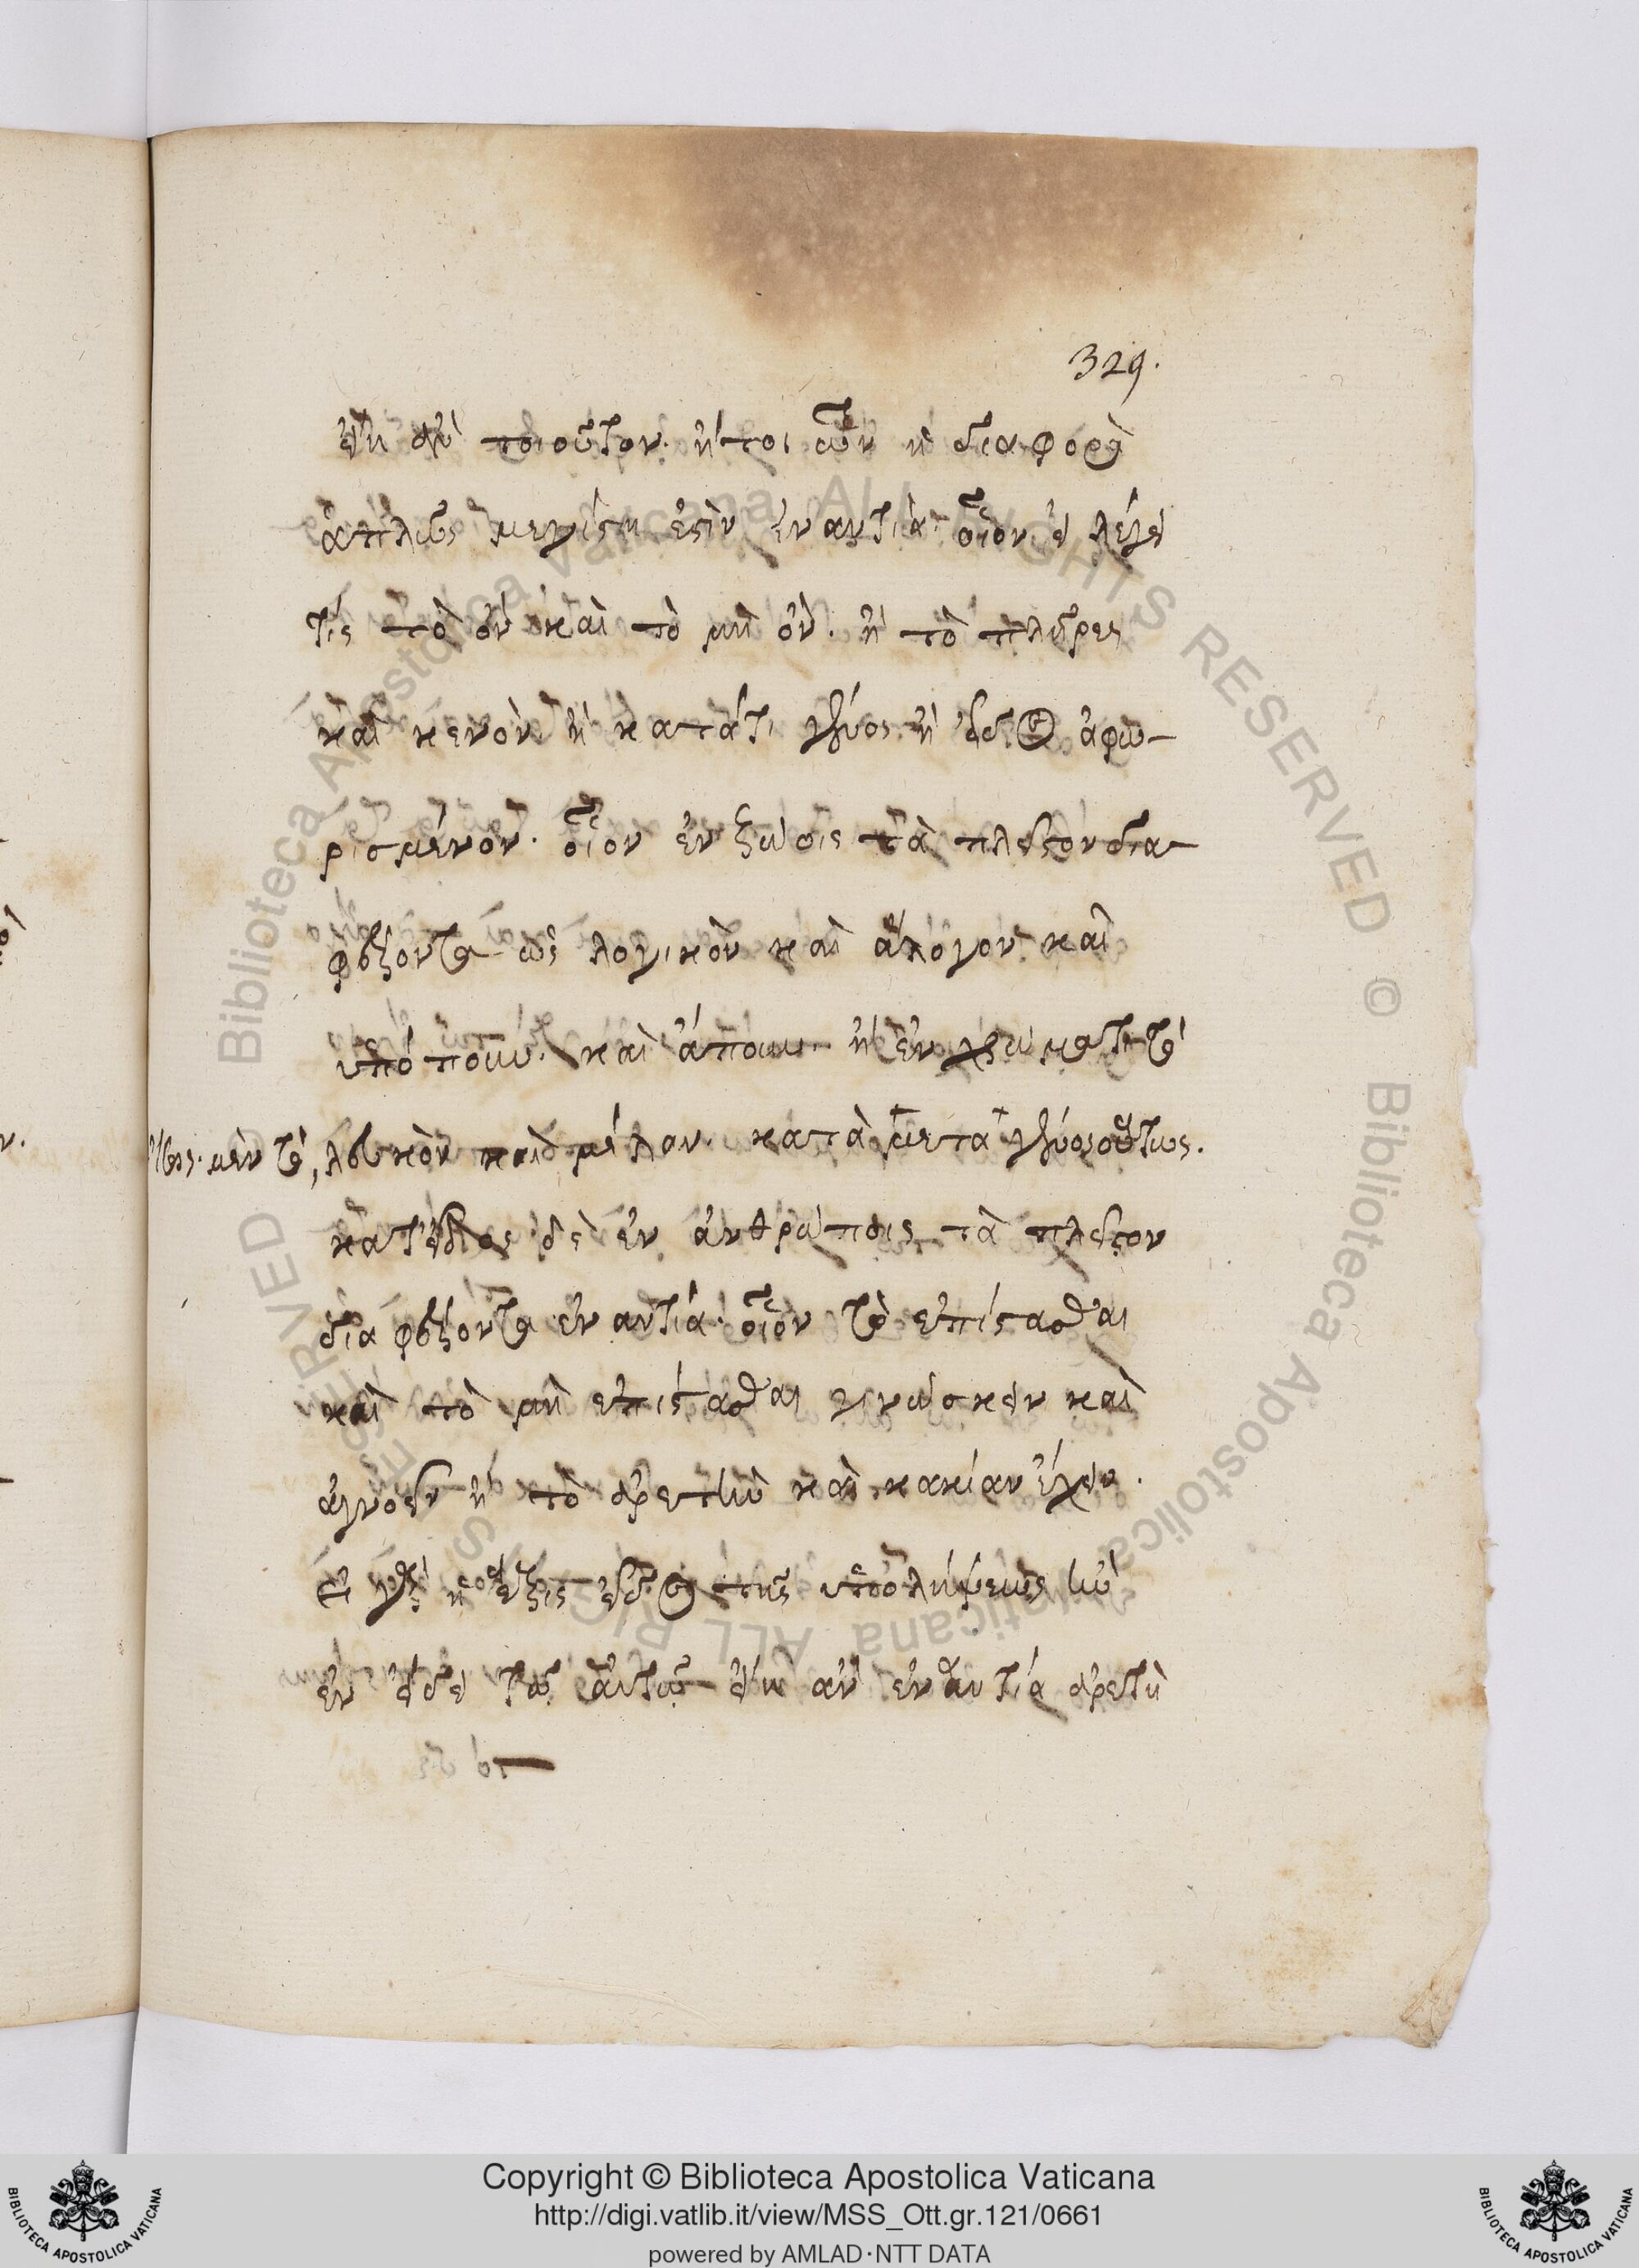 329.
εἴη ἂν τοιοῦτον. ἤτοι ὧν ἡ διαφορὰ
ἁπλῶς μεγίστη ἐστὶν ἐναντία· οἷον εἰ λέγει
τίς τὸ ὂν καὶ τὸ μὴ ὄν. ἢ τὸ πλῆρες
καὶ κενὸν ἢ κατά τι γένος ἢ εἶδος ἀφω-
ρισμένον. οἷον ἐν ζώοις τὰ πλεῖστον δια-
φέροντα ὡς λογικὸν καὶ ἄλογον καὶ
ὑπόπουν. καὶ ἄπουν ἢ ἐν χρώματι τὸ
λευκὸν καὶ μέλαν. κατὰ μετὰ γένος οὕτως.
κατ' εἶδος δὲ ἐν ἀνθρώποις τὰ πλεῖστον
διαφέροντα ἐναντία· οἷον τὸ ἐπίστασθαι
καὶ τὸ μὴ ἐπίστασθαι γινώσκειν καὶ
ἀγνοεῖν ἢ τὸ ἀρετὴν καὶ κακίαν ἔχειν.
ἡ ἕξις εἶδος τῆς ὑπολήψεως ἣν
ἐν εἴδει τῷ αὐτῷ εἴη ἂν ἐναντία ἀρετὴ
Copyright © Biblioteca Apostolica Vaticana
http://digi.vatlib.it/view/MSS_Ott.gr.121/0661
powered by AMLAD·NTT DATA
BIBLIOTECA APOSTOLICA VATICANA
BIBLIOTECA APOSTOLICA VATICANA
© Biblioteca Apostolica Vaticana ALL RIGHTS RESERVED
© Biblioteca Apostolica Vaticana ALL RIGHTS RESERVED